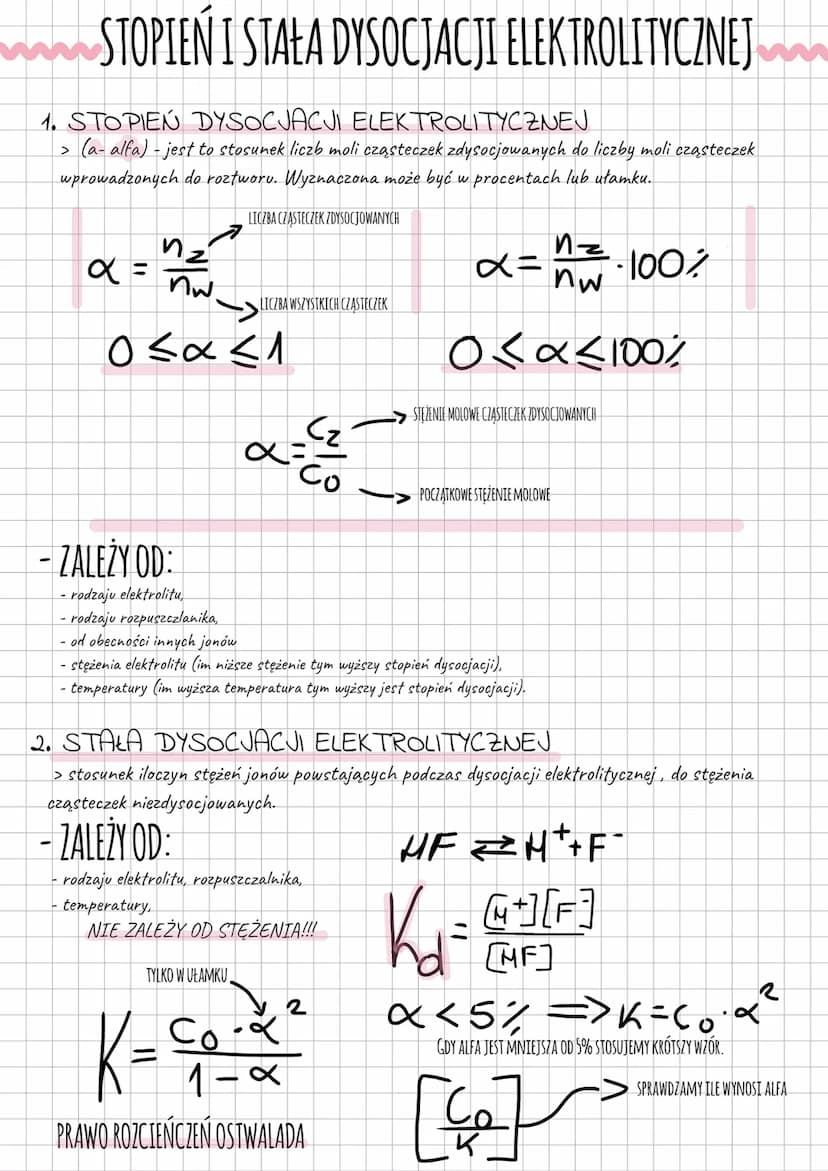 STOPIEŃ I STAŁA DYSOCJACJI ELEKTROLITYCZNEJ
1. STOPIEŃ DYSOCJACJI ELEKTROLITYCZNEJ
> (a- alfa) - jest to stosunek liczb moli cząsteczek zdysocjowanych do liczby moli cząsteczek
wprowadzonych do roztworu. Wyznaczona może być w procentach lub ułamku.
LICZBA CZĄSTECZEK ZDYSOCJOWANYCH
α = nz/nw
α = nz/nw · 100%
LICZBA WSZYSTKICH CZĄSTECZEK
0 ≤ α ≤ 1
0 ≤ α ≤ 100%
STĘŻENIE MOLOWE CZĄSTECZEK ZDYSOCJOWANYCH
α = Cz/C0
POCZĄTKOWE STĘŻENIE MOLOWE
- ZALEŻY OD:
- rodzaju elektrolitu,
- rodzaju rozpuszczlanika,
- od obecności innych jonów
- stężenia elektrolitu (im niższe stężenie tym wyższy stopień dysocjacji),
- temperatury (im wyższa temperatura tym wyższy jest stopień dysocjacji).
2. STAŁA DYSOCJACJI ELEKTROLITYCZNEJ
> stosunek iloczyn stężeń jonów powstających podczas dysocjacji elektrolitycznej , do stężenia
cząsteczek niezdysocjowanych.
- ZALEŻY OD:
- rodzaju elektrolitu, rozpuszczalnika,
- temperatury,
NIE ZALEŻY OD STĘŻENIA!!!
HF ⇄ H⁺ + F⁻
Kd = [H⁺][F⁻]/[HF]
TYLKO W UŁAMKU
K = C0 · α²/1 - α
PRAWO ROZCIEŃCZEŃ OSTWALADA
α < 5% => K = C0 · α²
GDY ALFA JEST MNIEJSZA OD 5% STOSUJEMY KRÓTSZY WZÓR.
[C0/K]
SPRAWDZAMY ILE WYNOSI ALFA